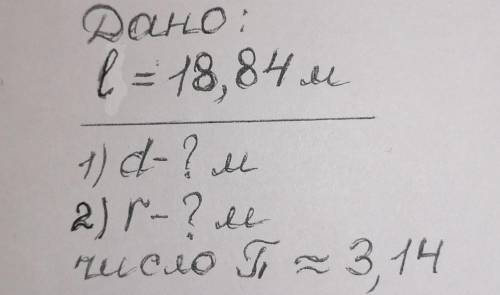 Дано:
l = 18,84 м
1) d - ? м
2) r - ? м
число П ≈ 3,14